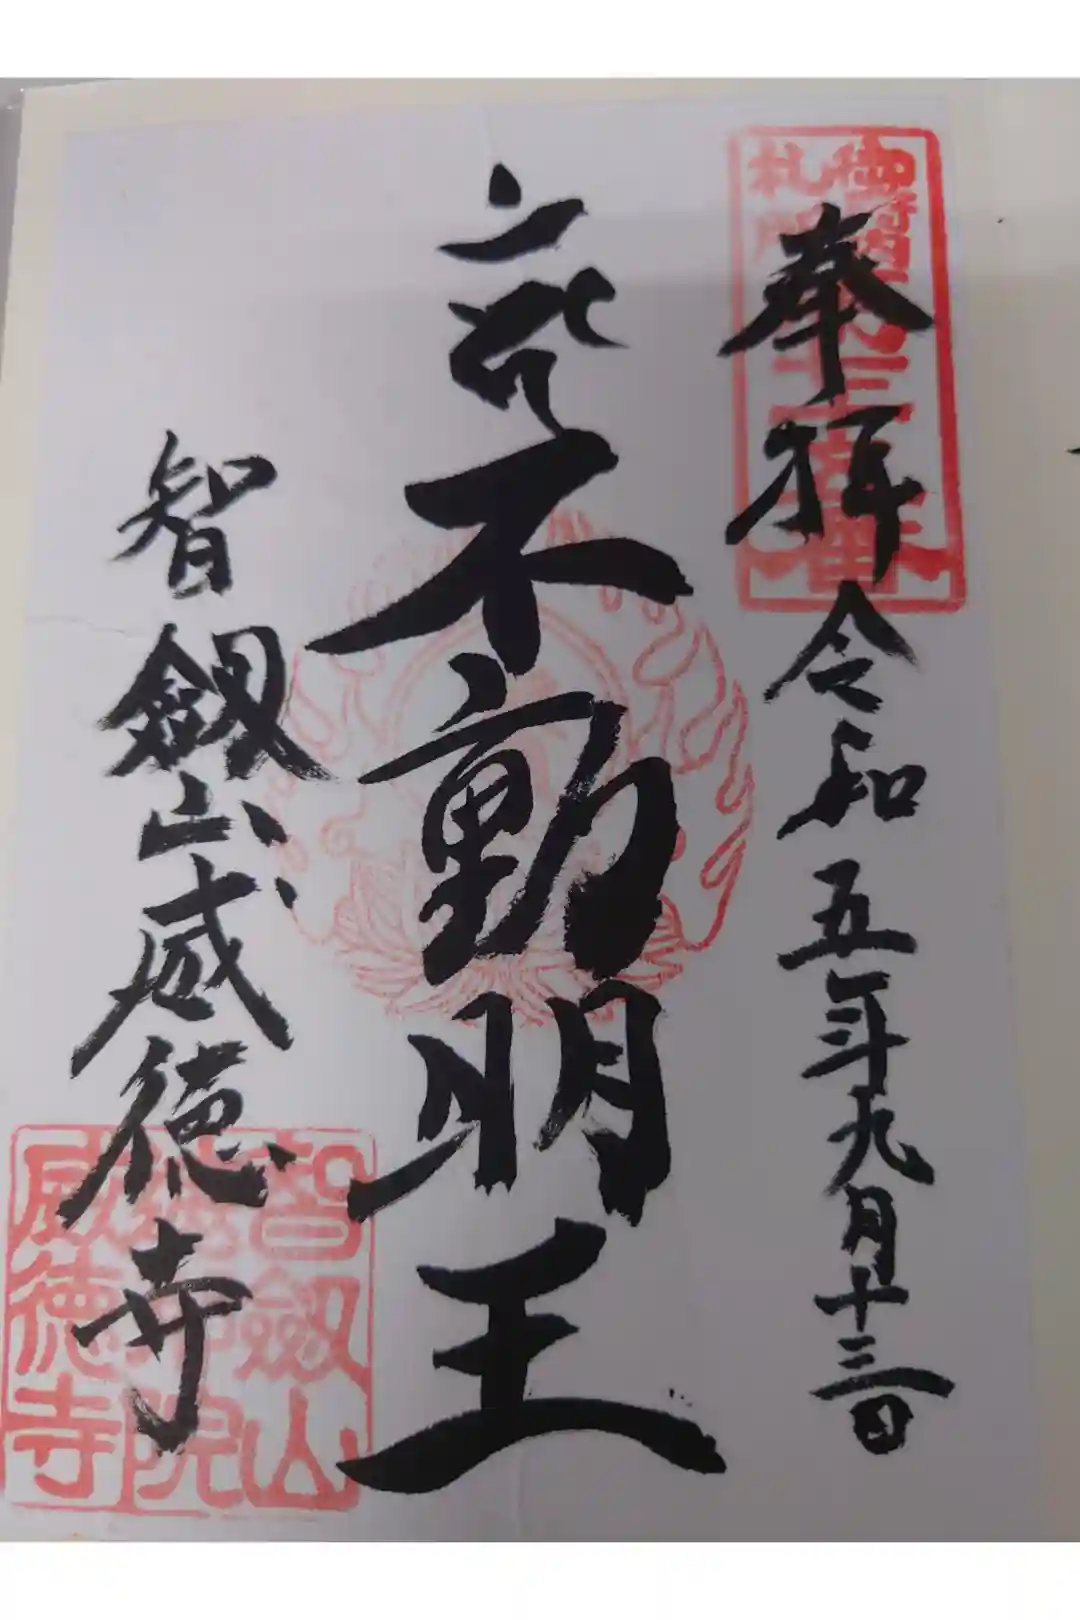 奉拝 令和五年九月十三日
不動明王
智劔山 威徳寺
智劔山
院
威徳寺